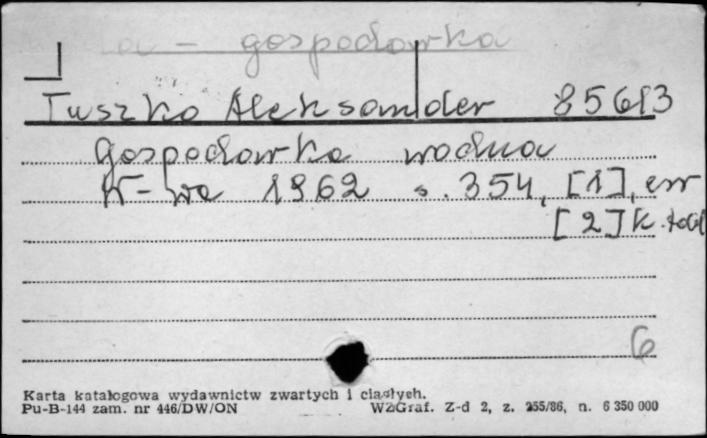 – gospodarka
Tuszko Aleksander 85613
Gospodarka wodna
W-wa 1962 s. 354, [1], err
[2] k. tabl
6
Karta katalogowa wydawnictw zwartych i ciągłych.
Pu-B-144 zam. nr 446/DW/ON WZGraf. Z-d 2, z. 255/86, n. 6 350 000